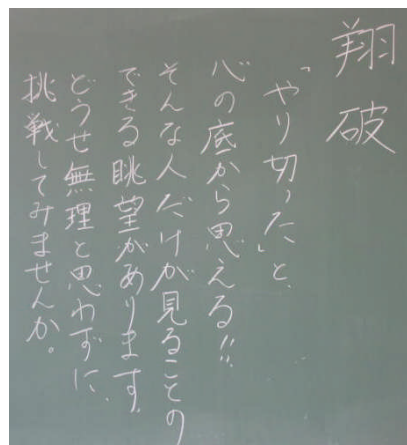 翔破
「やり切った」と、
心の底から思える!!
そんな人だけが見ることの
できる眺望があります。
どうせ無理と思わずに、
挑戦してみませんか。